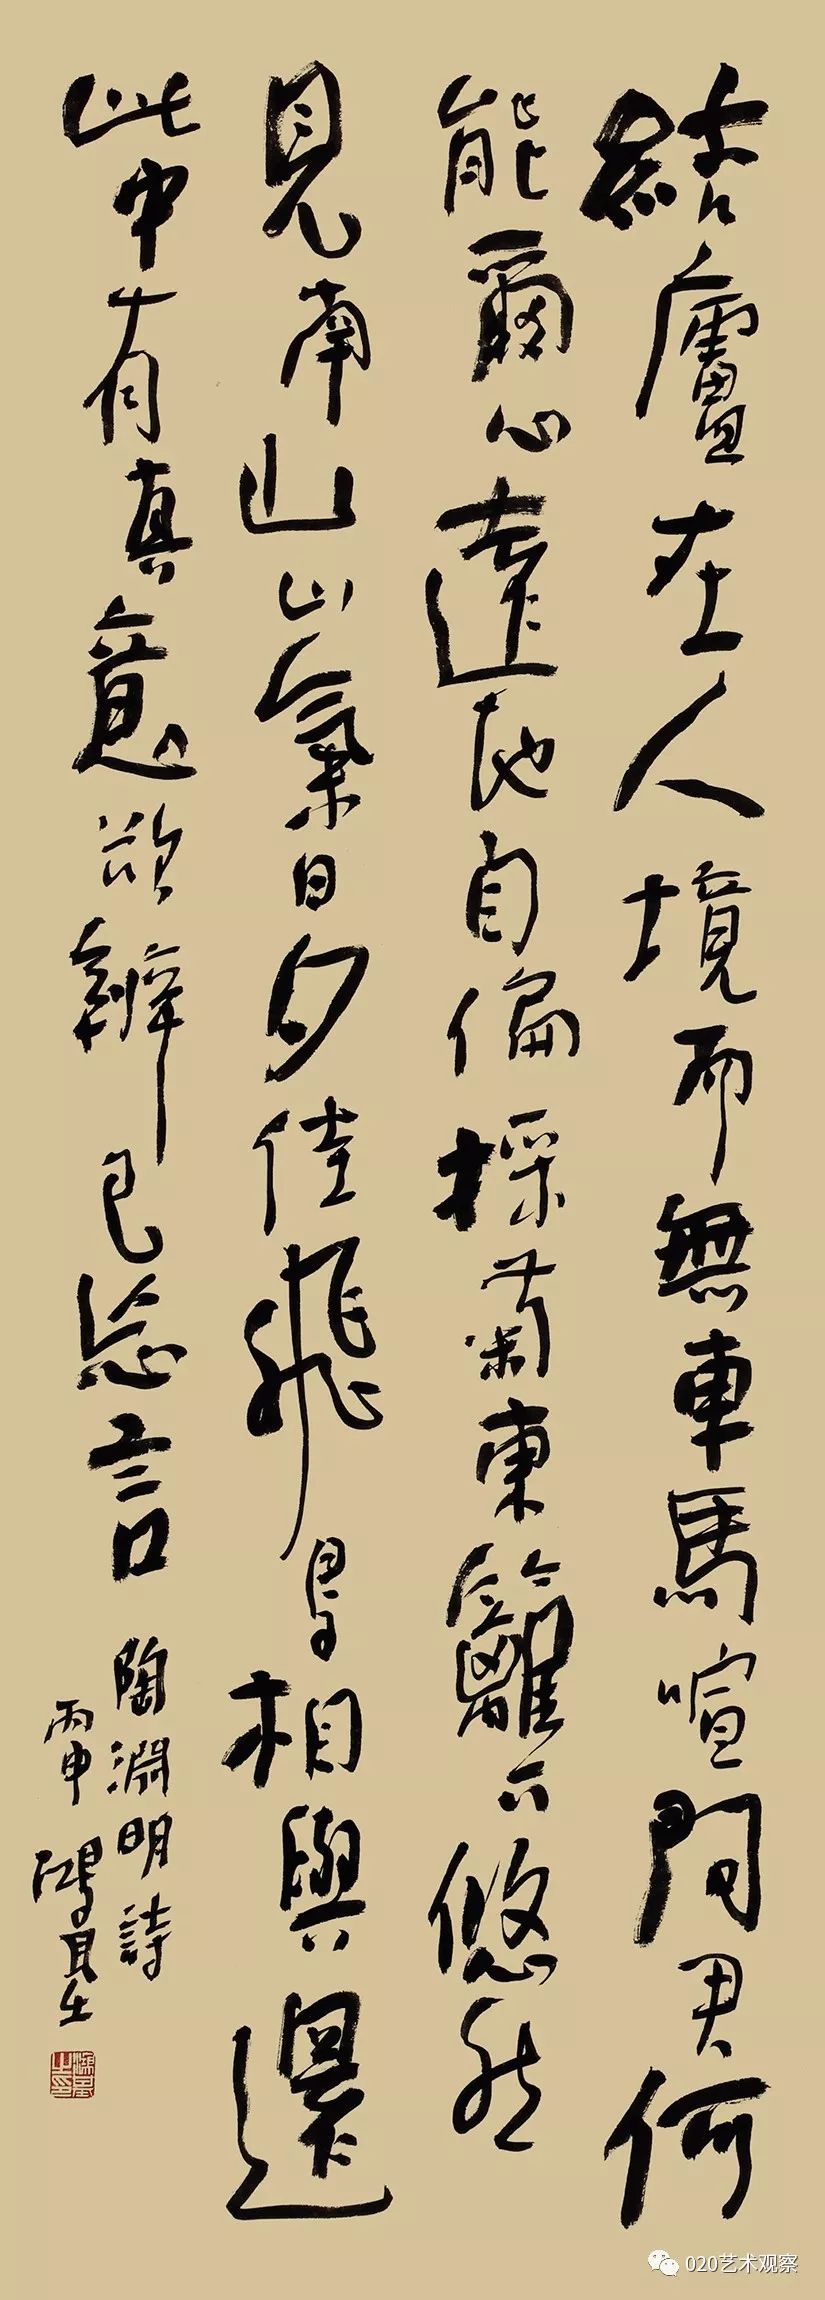 結廬在人境而無車馬喧問君何
能爾心遠地自偏採菊東籬下悠然
見南山山氣日夕佳飛鳥相與還
此中有真意欲辨已忘言
陶淵明詩
丙申
020艺术观察